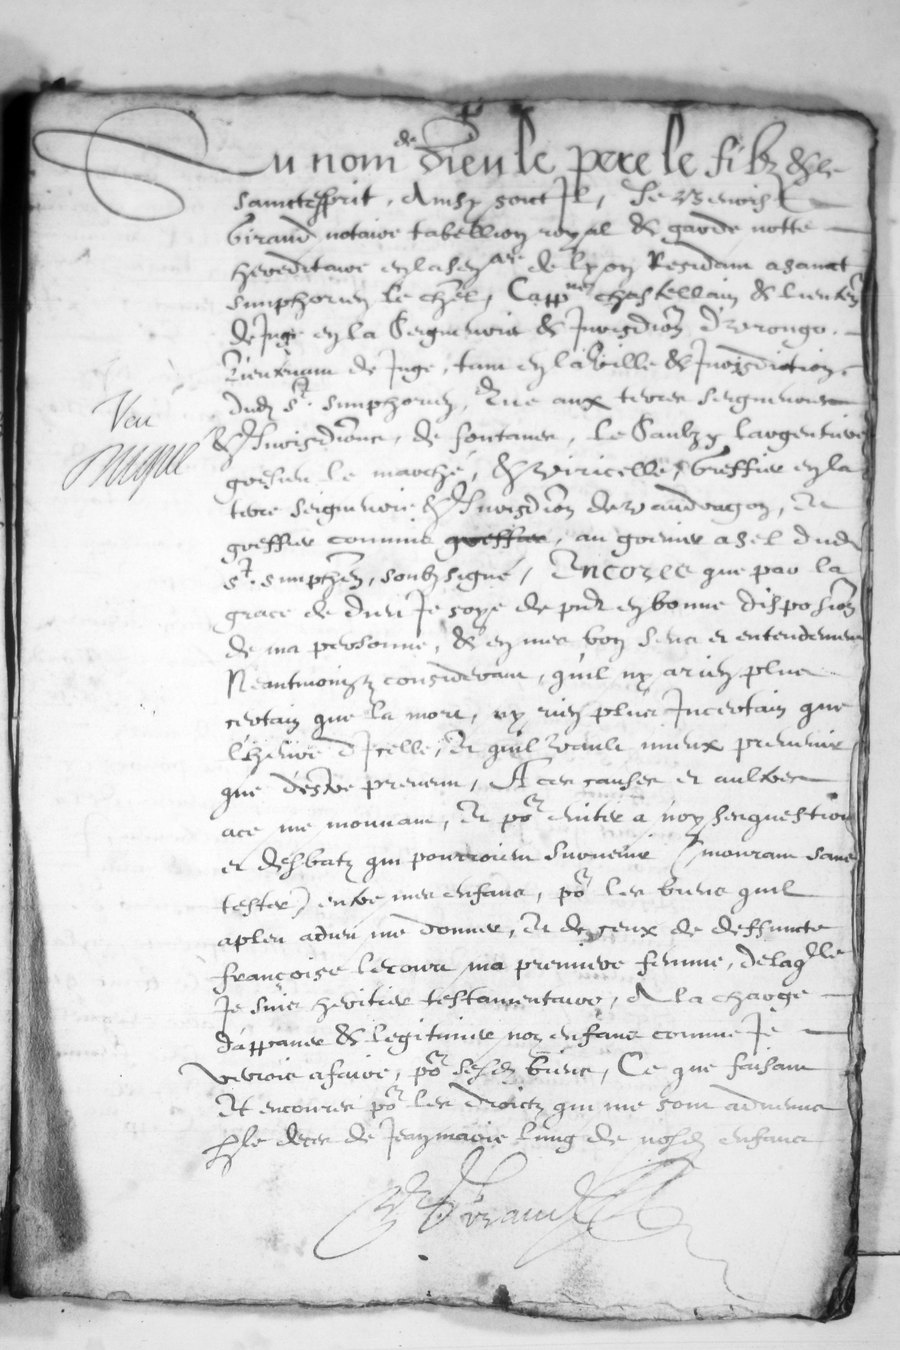 Au nom de dieu le pere le filz & le
sainct esprit, Ainsy soict Il, Je Benoist
Giraud notaire tabellion royal & garde notte
hereditaire en la sen^ce de lyon Residant a sainct
simphorien le chel, Capp^ne chastellain & lieuten
de Juge en la Seigneurie & Jurisdion
Lieutenant de Juge, tant en la ville & Jurisdiction
dud St. simphorien, Que aux terres seigneuries
Veu
& Jurisdions, de fontanes, le Saulzy largentiere
grezieu le marché, & Viricelle, Greffier en la
terre seigneurie & Jurisdion de Vaudragon, Et
greffier commis greffier, au grenier a sel dud
St. simphen, soubsigné, Encores que par la
grace de dieu Je soye de pnt en bonne disposion
de ma personne, & en mes bon sens et entendement
Neantmoingz considerant, quil ny a rien plus
certain que la mort, ny rien plus Incertain que
l'heure d'Icelle, Et quil vault mieux prevenir
que d'estre prevenu, A ces causes et aultres
a ce me mouvant, Et por eviter a noyse question
et desbatz qui pourroient survenir (mourant sans
tester) entre mes enfans, por les biens quil
a pleu a dieu me donner, Et de ceux de deffuncte
françoise ma premiere femme, de laqlle
Je suis heritier testamentaire, A la charge
d'appaner & legitimer noz enfans comme Je
verrois a faire, por sesd biens, Ce que faisant
Et encores por les droictz qui me sont advenus
p le deces de Jeanmarie l'ung de nosd enfans
Giraud